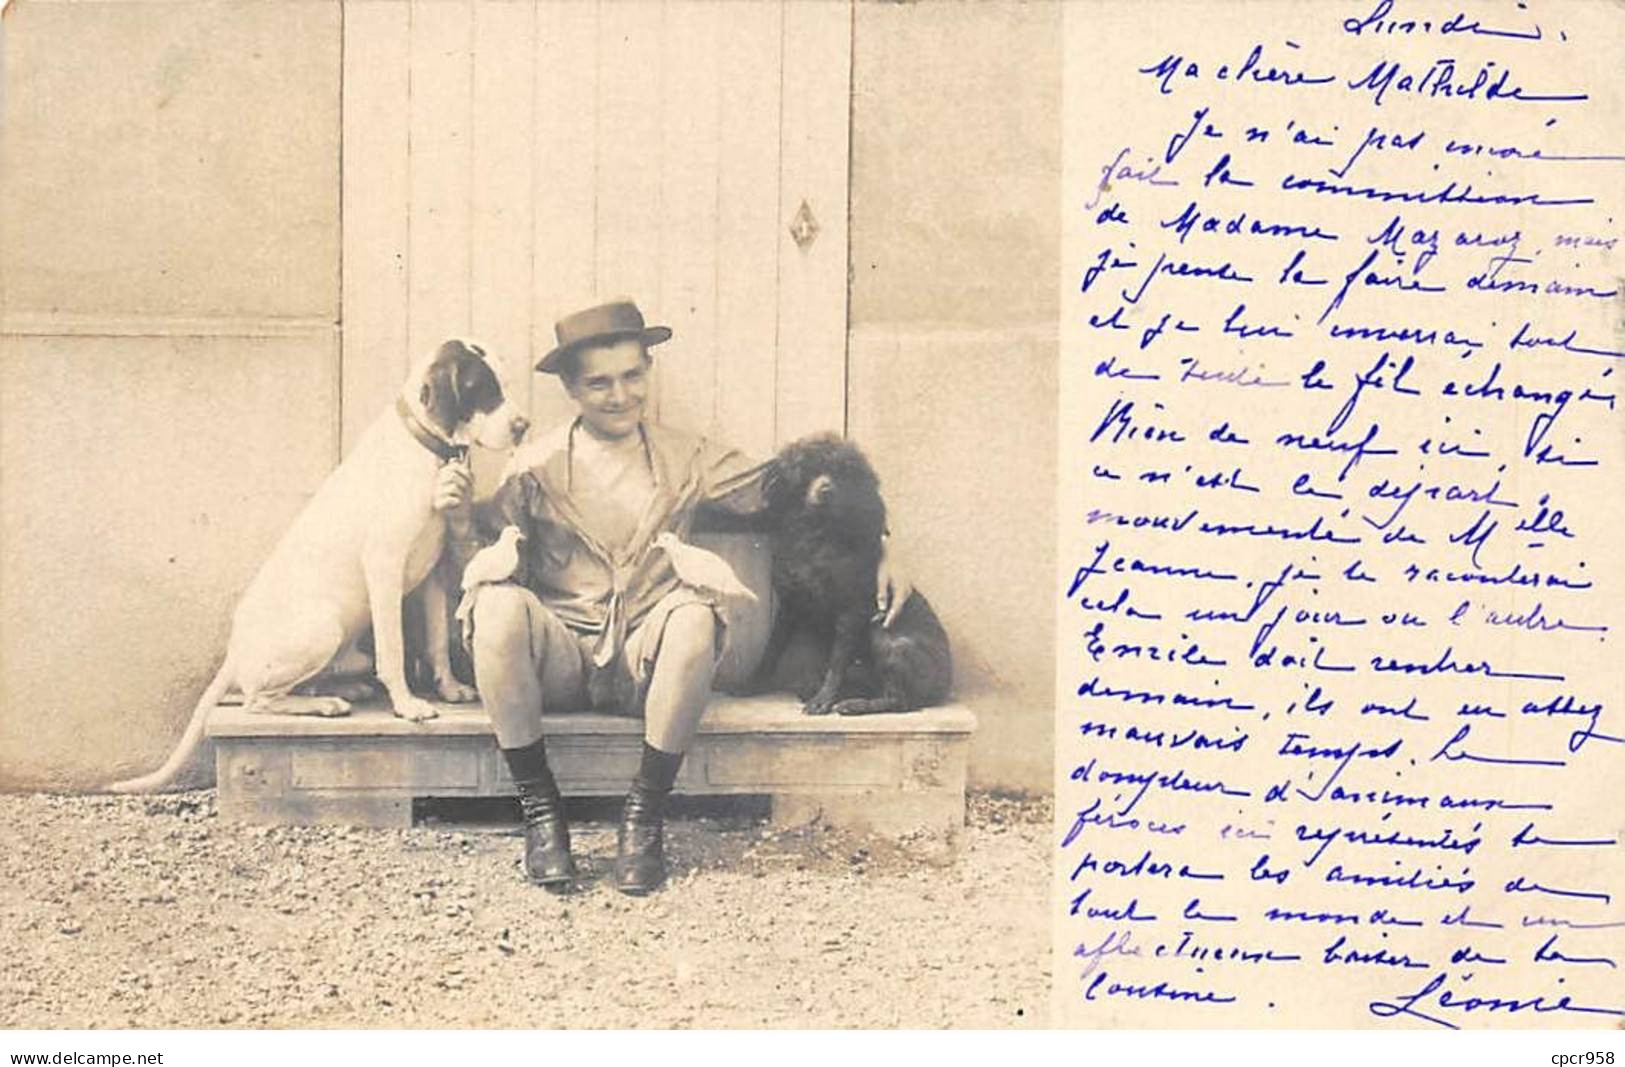 Lundi.
Ma chère Mathilde
Je n'ai pas encore
fait la commission
de Madame Mazaroz, mais
je pense la faire demain
et je lui enverrai, tout
de suite le fil échangé.
Rien de neuf ici, si
ce n'est le départ
mouvementé de Melle
Jeanne, je te raconterai
cela un jour ou l'autre.
Emile doit rentrer
demain, ils ont eu assez
mauvais temps. Le
dompteur d'animaux
féroces ici représentés te
portera les amitiés de
tout le monde et un
affectueux baiser de ta
cousine. Léonie
www.delcampe.net
cpcr958